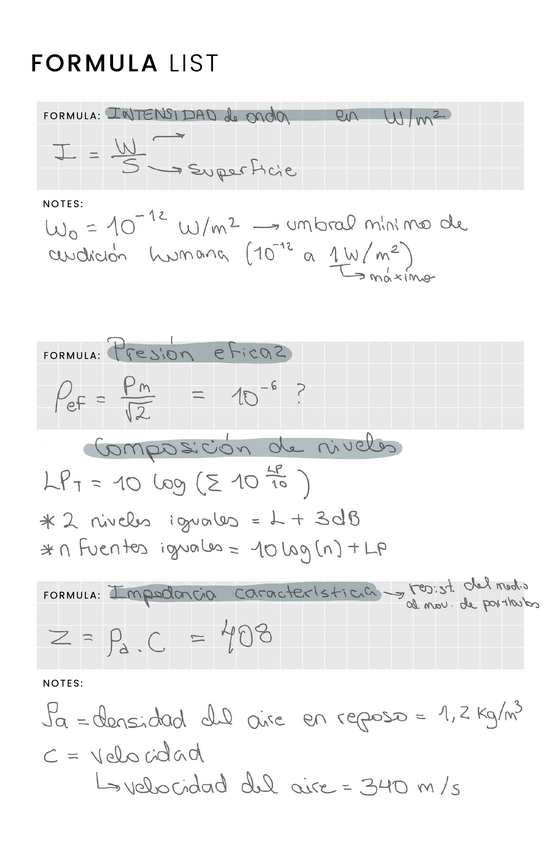 FORMULA LIST
FORMULA: INTENSIDAD de onda en W/m²
I = W/S → superficie
NOTES:
W₀ = 10⁻¹² W/m² → umbral mínimo de
audición humana (10⁻¹² a 1W/m²)
↳ máximo
FORMULA: Presión eficaz
Pef = Pm/√2 = 10⁻⁶ ?
Composición de niveles
LP_T = 10 log (Σ 10^(LP/10))
* 2 niveles iguales = L + 3dB
* n fuentes iguales = 10log(n) + LP
FORMULA: Impedancia característica → resist. del medio
al mov. de partículas
Z = ρa . C = 408
NOTES:
ρa = densidad del aire en reposo = 1,2 Kg/m³
C = velocidad
↳ velocidad del aire = 340 m/s